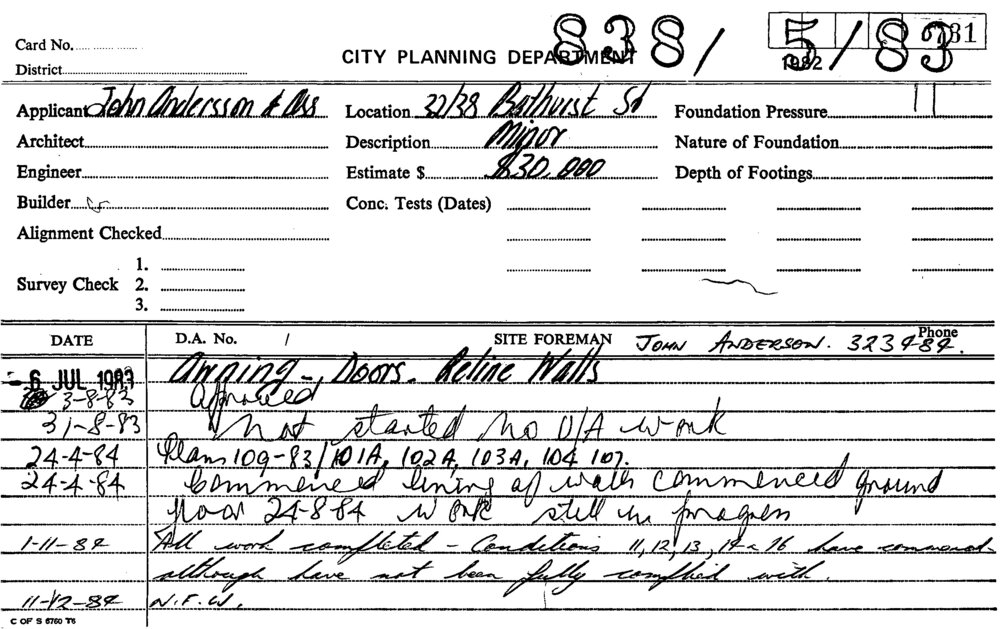 838/ 5/83
Card No. 81
CITY PLANNING DEPARTMENT 1982
District
Applicant John Andersson & Ass Location 32/38 Bathurst St Foundation Pressure
Architect Description Minor Nature of Foundation
Engineer Estimate $ $30,000 Depth of Footings
Builder Conc. Tests (Dates)
Alignment Checked
1.
Survey Check 2.
3.
DATE D.A. No. / SITE FOREMAN JOHN ANDERSON. Phone 3234-84.
- 6 JUL 1983 Awning - Doors. Reline Walls
3-8-83 Approved
31-8-83 Not started No D/A work
24-4-84 Plans 109-83/101A, 102A, 103A, 104 107.
24-4-84 Commenced lining of walls commenced ground
floor 24-8-84 work still in progress
1-11-84 All work completed - Conditions 11, 12, 13, 14 & 16 have commenced
although have not been fully complied with.
11-12-84 N.F.W.
C OF S 6760 T6